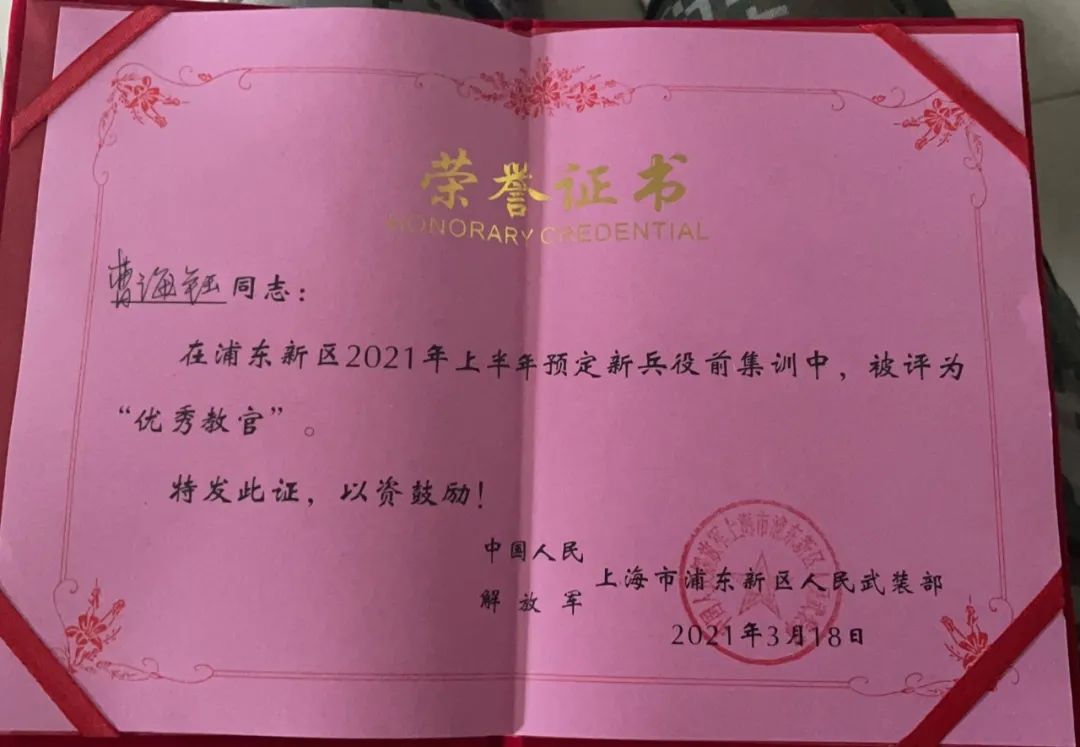 荣誉证书
HONORARY CREDENTIAL
曹海钰同志：
在浦东新区2021年上半年预定新兵役前集训中，被评为
“优秀教官”。
特发此证，以资鼓励！
中国人民
解放军 上海市浦东新区人民武装部
2021年3月18日